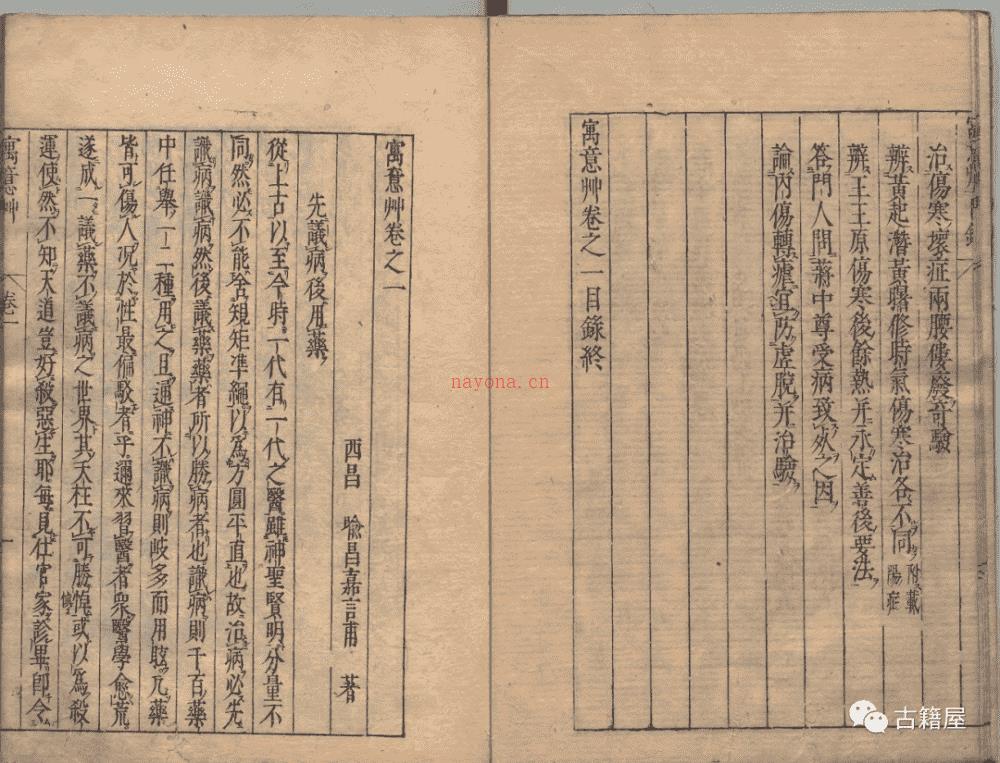 治傷寒壞症兩腰僂廢奇驗
辨黃起潛黃曙修時氣傷寒治各不同 附載陽症
辨王玉原傷寒後餘熱并永定善後要法
答門人問蔣中尊受病致死之因
論內傷轉瘧宜防虛脫并治驗
寓意艸卷之一目錄終
寓意艸卷之一
先議病後用藥
西昌 喻昌嘉言甫 著
從上古以至今時一代有一代之醫雖神聖賢明分量不
同然必不能舍規矩準繩以爲方圓平直也故治病必先
識病識病然後議藥藥者所以勝病者也識病則千百藥
中任舉一二種用之且通神不識病則歧多而用眩凡藥
皆可傷人况於性最偏駁者乎邇來習醫者衆醫學愈荒
遂成一議藥不議病之世界其夭枉不可勝悼或以爲殺
運使然不知天道豈好殺惡生耶每見仕宦家診畢卽令
寓意艸 卷一 一
nayona.cn
古籍屋